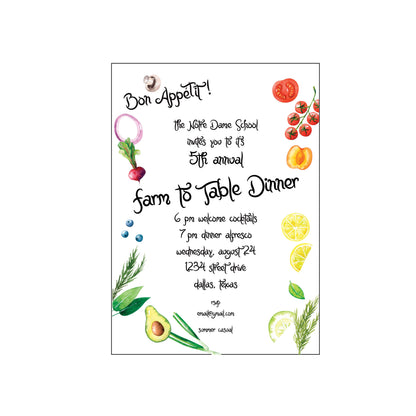 Bon Appetit!
the Notre Dame School
invites you to it's
5th annual
farm to Table Dinner
6 pm welcome cocktails
7 pm dinner alfresco
wednesday, august 24
1234 street drive
dallas, texas
rsvp
email@ymail.com
sommer casual